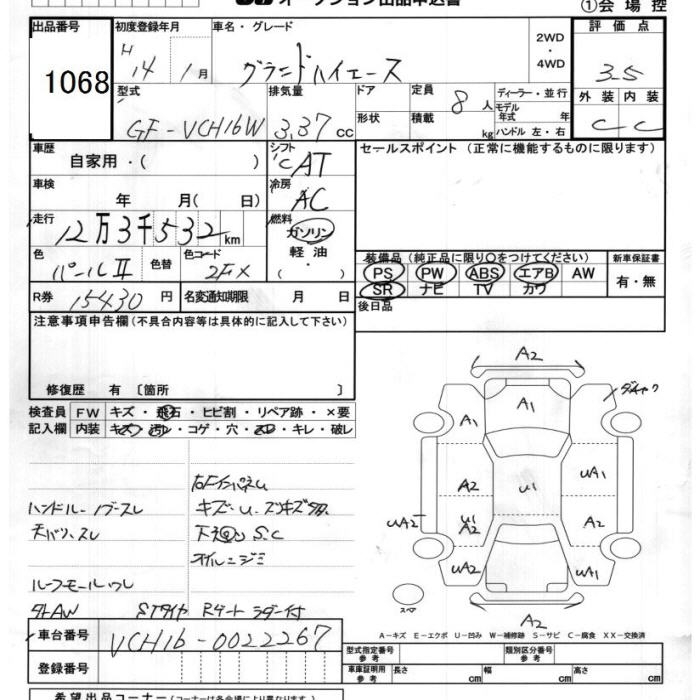 オークション出品申込書
①会場控
出品番号 1068
初度登録年月 H14年1月
車名・グレード グランドハイエース
2WD・4WD
評価点 3.5
外装 C 内装 C
型式 GF-VCH16W
排気量 3.37 cc
ドア 形状
定員 8人
積載 kg
ディーラー・並行
モデル年式 年
ハンドル 左・右
車歴 自家用・( )
シフト C AT
セールスポイント (正常に機能するものに限ります)
車検 年 月( 日)
冷房 AC
走行 12万3千532km
燃料 ガソリン 軽油 ・ ( )
色 パールII 色替
色コード 2FX
装備品 (純正品に限り○をつけてください)
PS PW ABS エアB AW
SR ナビ TV カワ
新車保証書 有・無
R券 15430円
名変通知期限 月 日
後日品
注意事項申告欄 (不具合内容等は具体的に記入して下さい)
修復歴 有 〔箇所 〕
検査員記入欄
FW キズ・飛石・ヒビ割・リペア跡・×要
内装 キズ・汚レ・コゲ・穴・スレ・キレ・破レ
右Fインパネu
ハンドルノブスレ キズ・u・ネジキズ多
天バリスレ 下ネ S.C
オイルニジミ
ルーフモールワレ
外AW STタイヤ Rゲートラダー付
A2
A1
A1
ダイヤク
A2
uA1
u1
uA2
u1
A2
A2
uA2
uA1
スペア
A2
A－キズ E－エクボ U－凹み W－補修跡 S－サビ C－腐食 XX－交換済
車台番号 VCH16-0022267
登録番号
型式指定番号 参考
類別区分番号 参考
車庫証明用 参考 長さ cm 幅 cm 高さ cm
希望出品コーナー (コーナーは各会場により異なります)